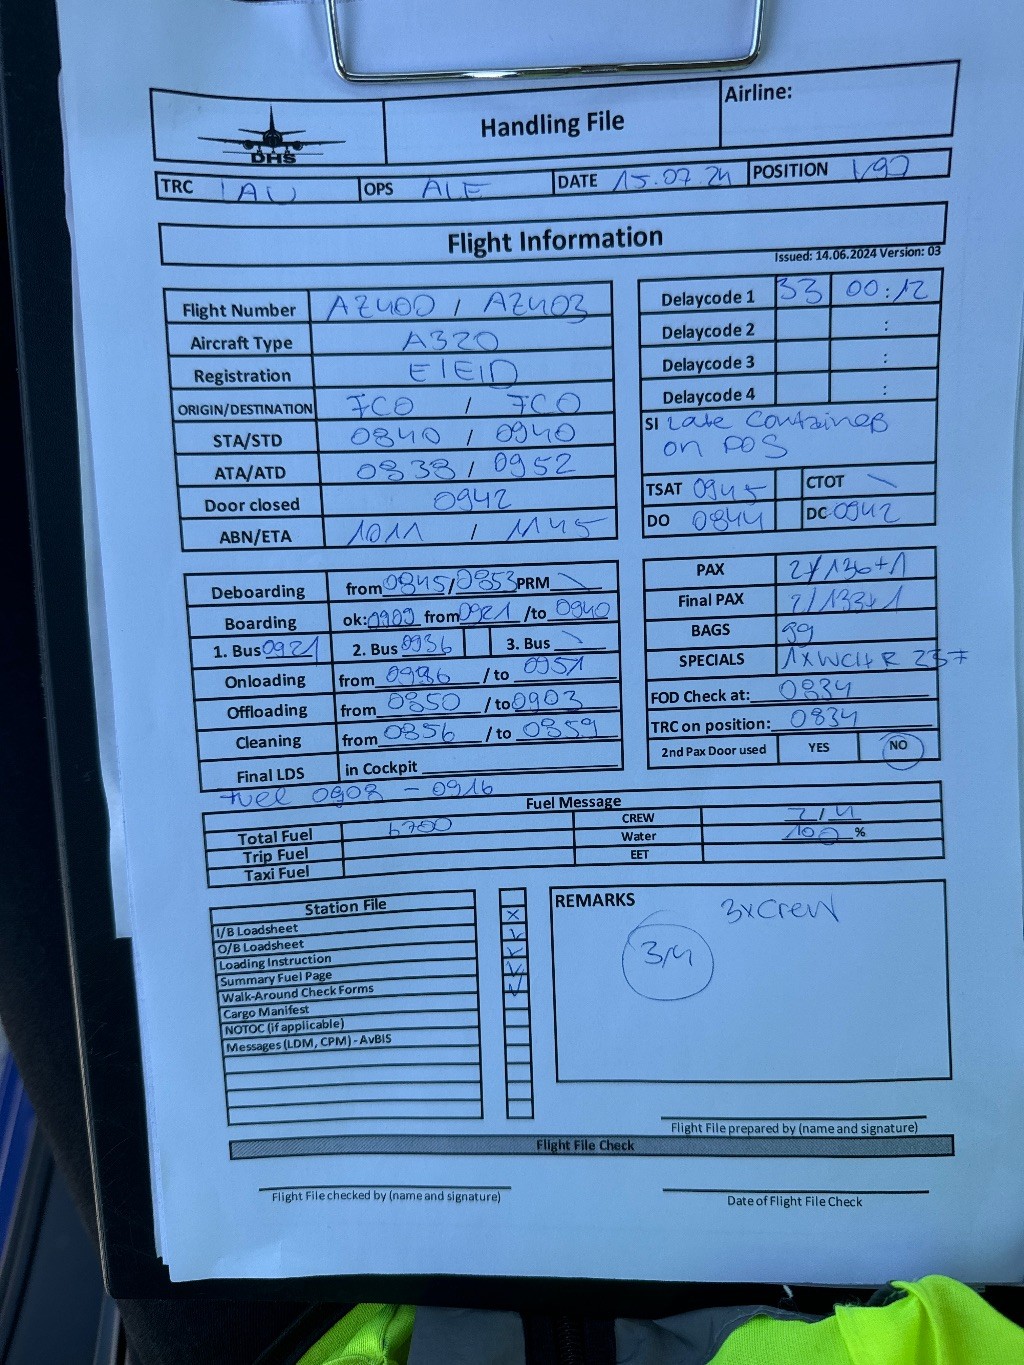 Airline:
Handling File
DHS
TRC IAU OPS ALE DATE 15.07.24 POSITION V97
Flight Information
Issued: 14.06.2024 Version: 03
Flight Number AZ400 / AZ403
Aircraft Type A320
Registration EIEID
ORIGIN/DESTINATION FCO / FCO
STA/STD 0840 / 0940
ATA/ATD 0838 / 0952
Door closed 0942
ABN/ETA 1011 / 1145
Delaycode 1 33 00:12
Delaycode 2 :
Delaycode 3 :
Delaycode 4 :
SI Late Container
on POS
TSAT 0945 CTOT \
DO 0844 DC 0942
Deboarding from 0845/0853 PRM \
Boarding ok: 0909 from 0921 /to 0940
1. Bus 0921 2. Bus 0936 3. Bus \
Onloading from 0936 / to 0951
Offloading from 0850 / to 0903
Cleaning from 0856 / to 0859
Final LDS in Cockpit
fuel 0908 - 0916
PAX 2/136+1
Final PAX 2/133+1
BAGS 99
SPECIALS 1xWCHR 23F
FOD Check at: 0834
TRC on position: 0834
2nd Pax Door used YES NO
Fuel Message
Total Fuel 6700 CREW 2/4
Trip Fuel Water 100 %
Taxi Fuel EET
Station File
I/B Loadsheet
O/B Loadsheet
Loading Instruction
Summary Fuel Page
Walk-Around Check Forms
Cargo Manifest
NOTOC (if applicable)
Messages (LDM, CPM) - AvBIS
REMARKS
3xCrew
3/4
Flight File prepared by (name and signature)
Flight File Check
Flight File checked by (name and signature)
Date of Flight File Check